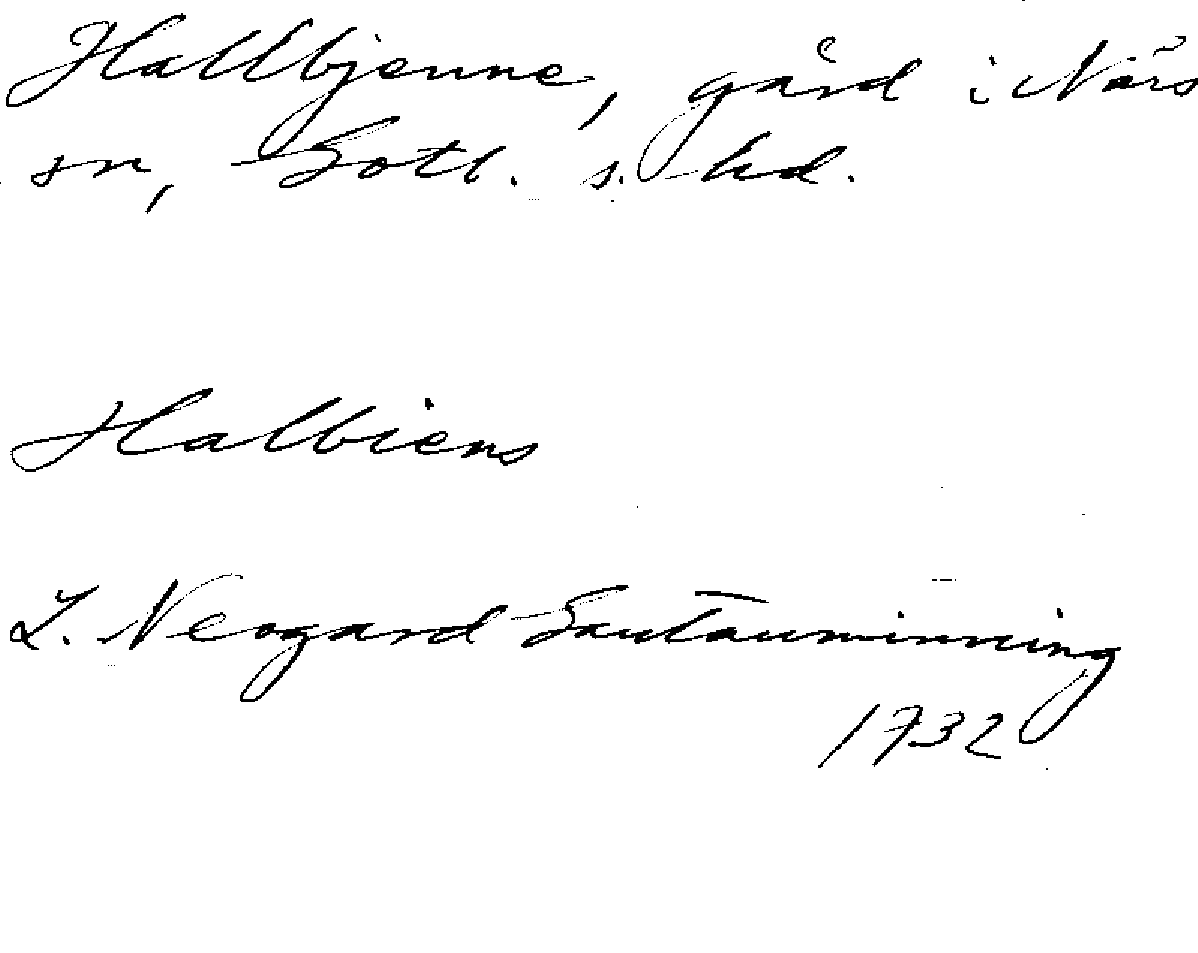 Hallbjenne, gård i Närs
sn, Gotl. s. hd.
Halbiens
L. Neogard Gautauminning
1732